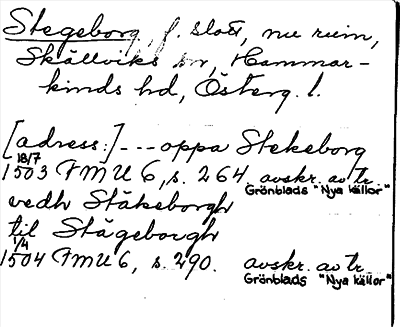 Stegeborg, f. slott, nu ruin,
Skällviks sn, Hammar-
kinds hd, Österg. l.
[adress:] --- oppa Stekeborg
18/7
1503 FMU 6, s. 264 avskr. av tr.
Grönblads "Nya källor"
vedh Stäkeborgh
til Stägeborgh
1/4
1504 FMU 6, s. 290. avskr. av tr.
Grönblads "Nya källor"